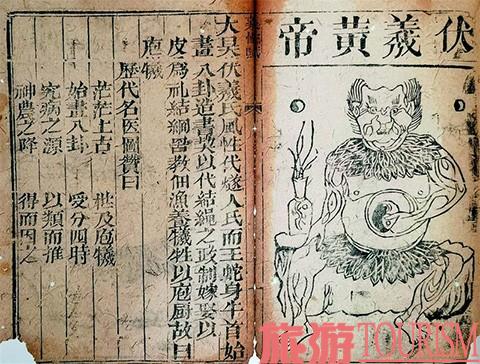 伏羲黄帝
大昊伏羲氏風性代燧人氏而王蛇身牛首始
畫八卦造書契以代結繩之政制嫁娶以
皮爲礼結網罟教佃漁養犧牲以庖厨故曰
庖犧
歷代名医圖贊曰
茫茫上古 及庖犧
始畫八卦 爰分四時
究病之源 以類而推
神農之降 得而因之
旅游TOURISM